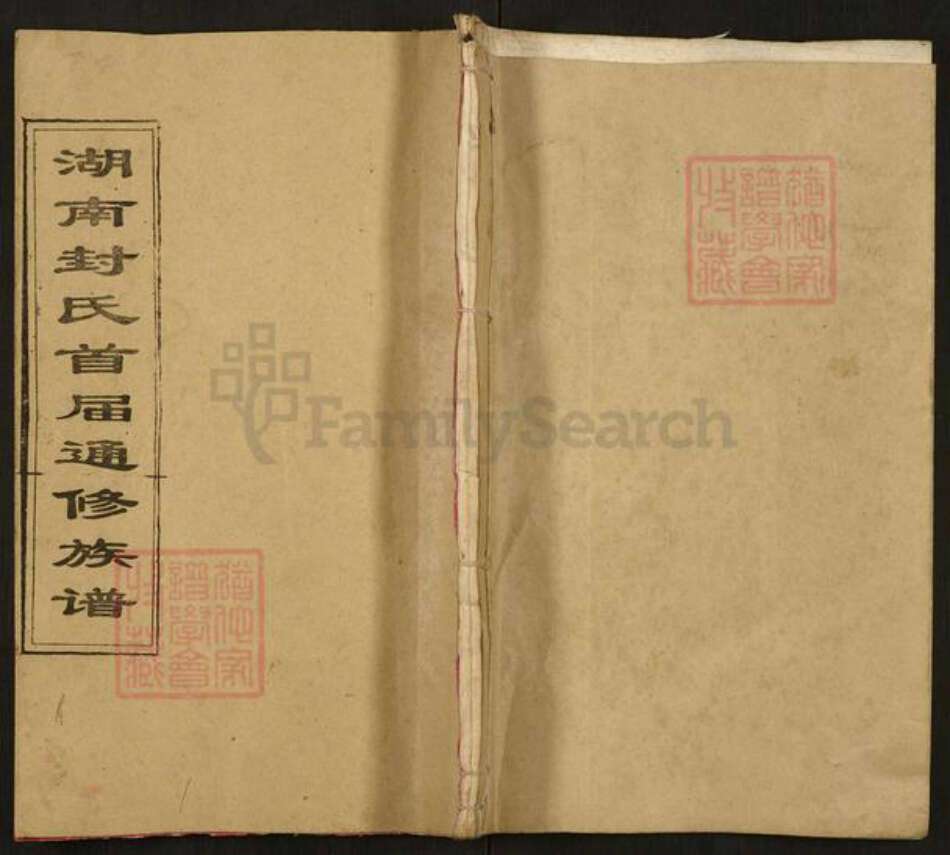 湖南封氏首届通修族谱
猶他家
譜學會
收藏
猶他家
譜學會
收藏
FamilySearch